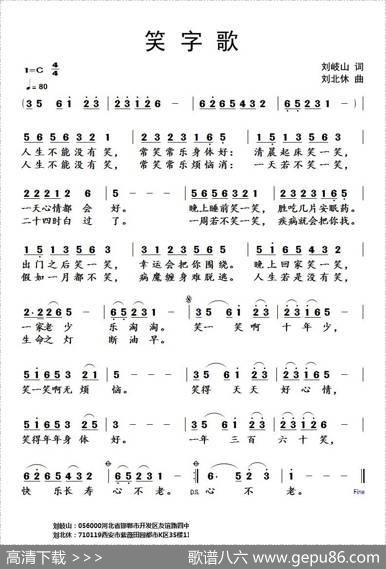 笑字歌
1=C 4/4
刘岐山 词
♩=80
刘北休 曲
(35 61 23 | 23126 - | 6265432 | 65231 - )
5656321 | 2323165 | 1513563 |
人生不能没有笑, 常笑常乐身体好: 清晨起床笑一笑,
人生不能没有笑, 常笑常乐烦恼消: 一天若不笑一笑,
2221265 - - - | 1513563 | 2323165 |
一天心情都会好。 晚上睡前笑一笑, 胜吃几片安眠药。
二十四时白过了。 一周若不笑一笑, 疾病就会把你找。
1513563 | 2323165 | 1513563 |
出门之后笑一笑, 幸运会把你围绕。 晚上回家笑一笑,
假如一月都不笑, 病魔缠身难脱逃。 人生若是没有笑,
一家老少 乐淘淘。 笑一笑啊十年少,
生命之灯 断油早。
笑一笑啊无烦恼。 笑得天天好心情,
笑得年年身体好。 一年三百六十笑,
快乐长寿心不老。 D.S. 心不老。 Fine
刘岐山:056000河北省邯郸市开发区友谊路四中
刘北休:710119西安市紫薇田园都市K区35楼1
高清下载 >>> 歌谱八六 www.gepu86.com